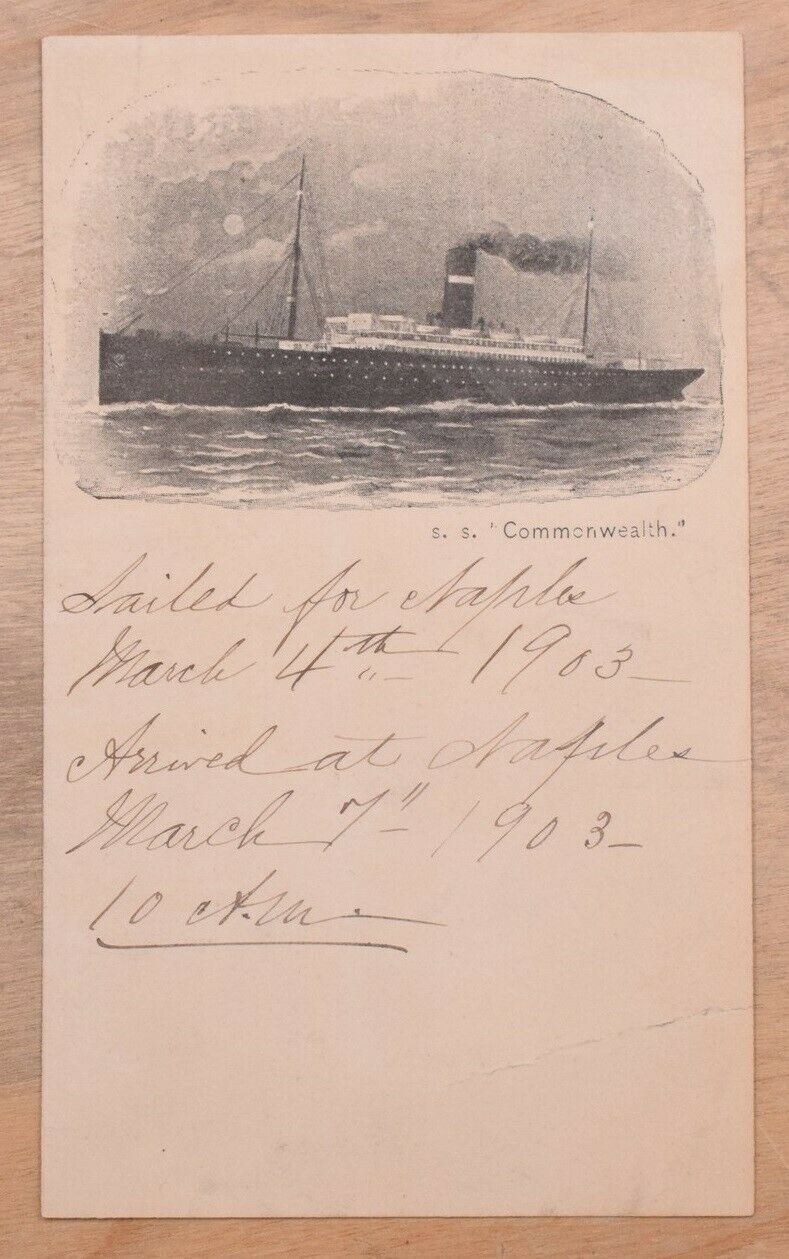 s. s. "Commonwealth."
Sailed for Naples
March 4th 1903—
Arrived at Naples
March 7" 1903—
10 A.M.—